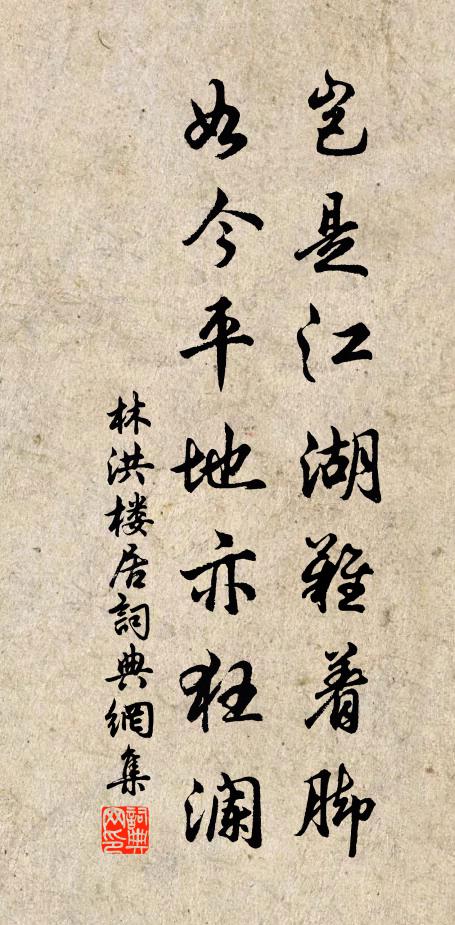 岂是江湖难着脚
如今平地亦狂澜
林洪楼居詞典網集
詞典網印